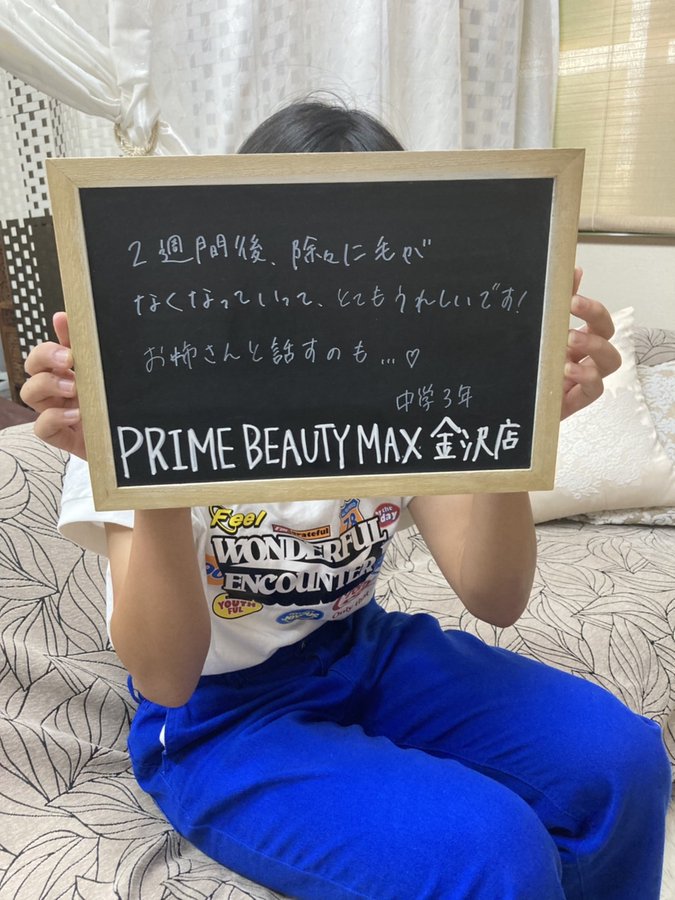 2週間後、除々に毛が
なくなっていって、とてもうれしいです!
お姉さんと話すのも…♡
中学3年
PRIME BEAUTY MAX 金沢店
Feel
WONDERFUL
ENCOUNTER
YOUTH
FUL
the
day